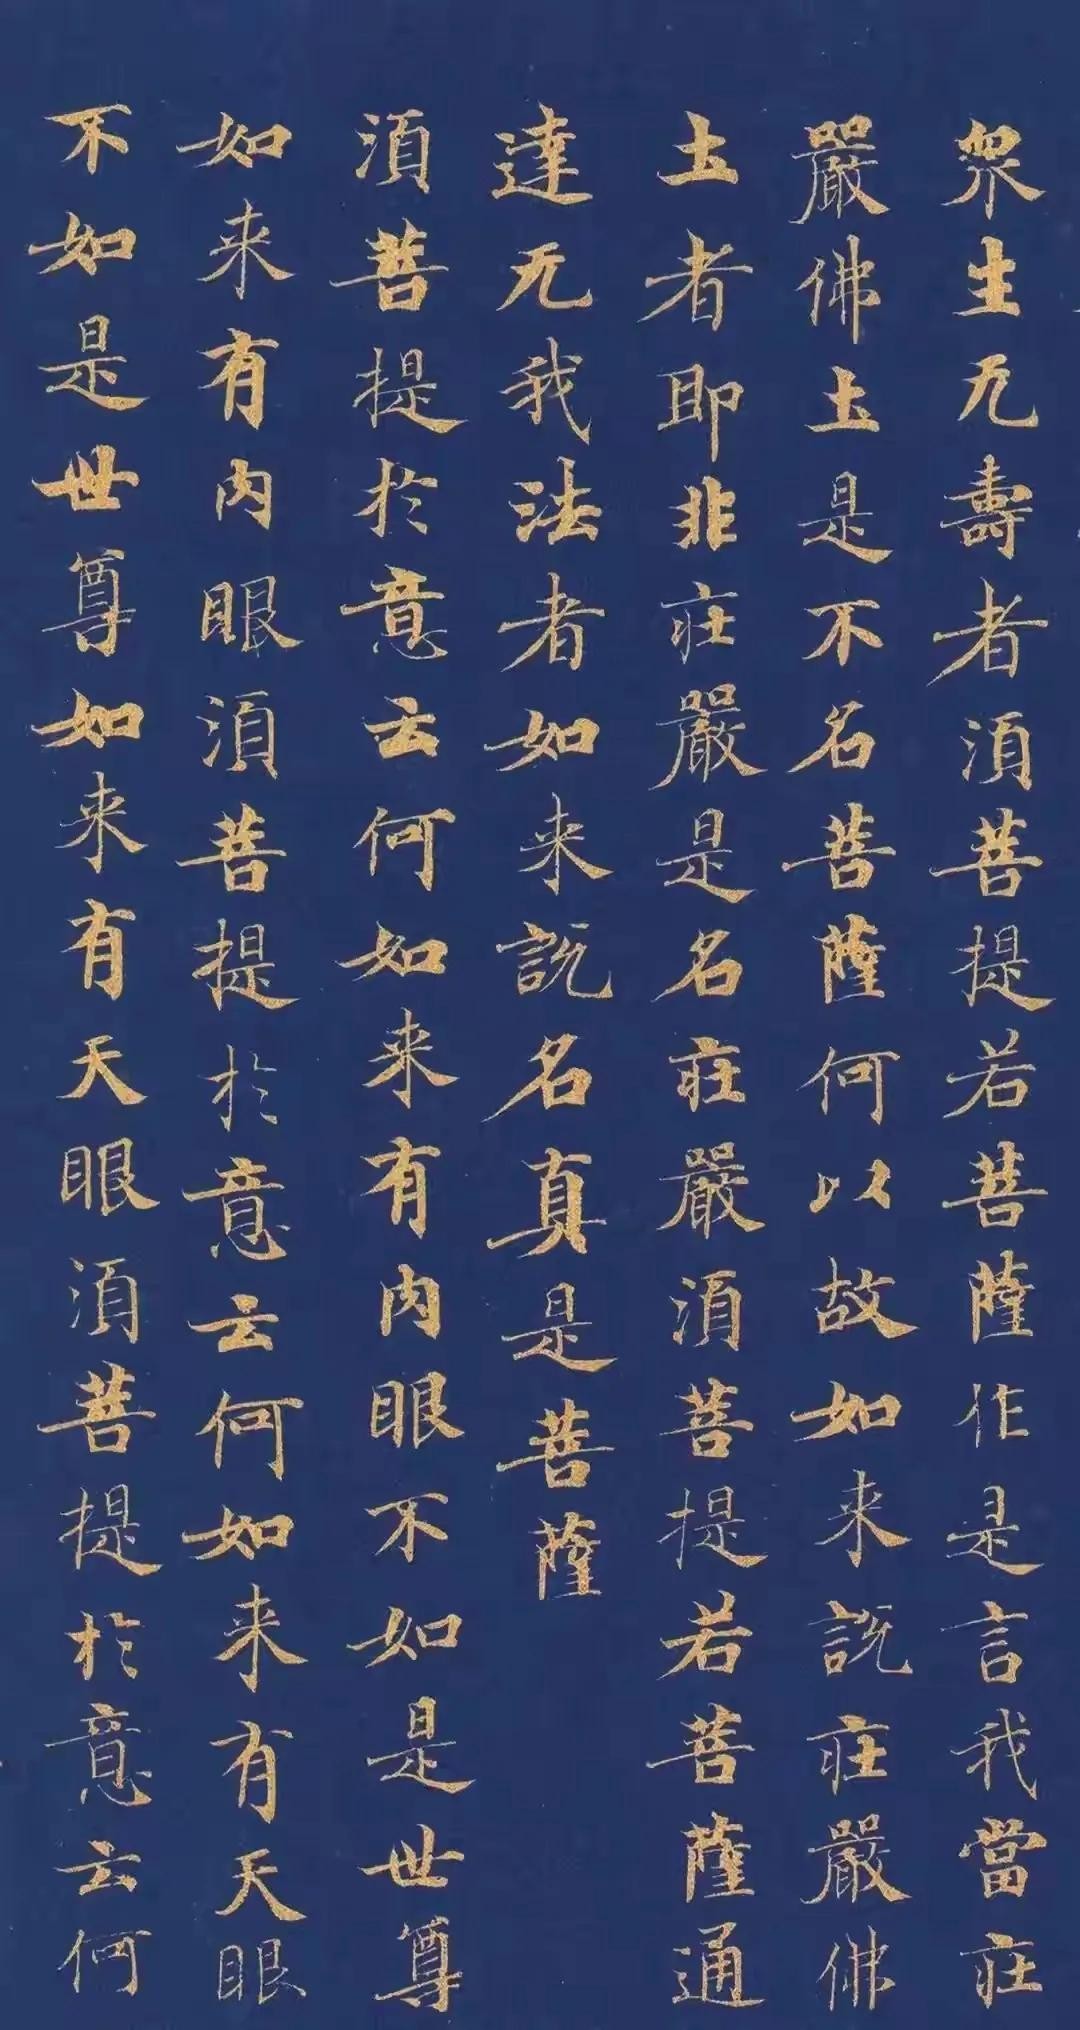 衆生无壽者湏菩提若菩薩作是言我當莊
嚴佛土是不名菩薩何以故如来說莊嚴佛
土者即非莊嚴是名莊嚴湏菩提若菩薩通
達无我法者如来說名真是菩薩
湏菩提於意云何如来有肉眼不如是世尊
如来有肉眼湏菩提於意云何如来有天眼
不如是世尊如来有天眼湏菩提於意云何